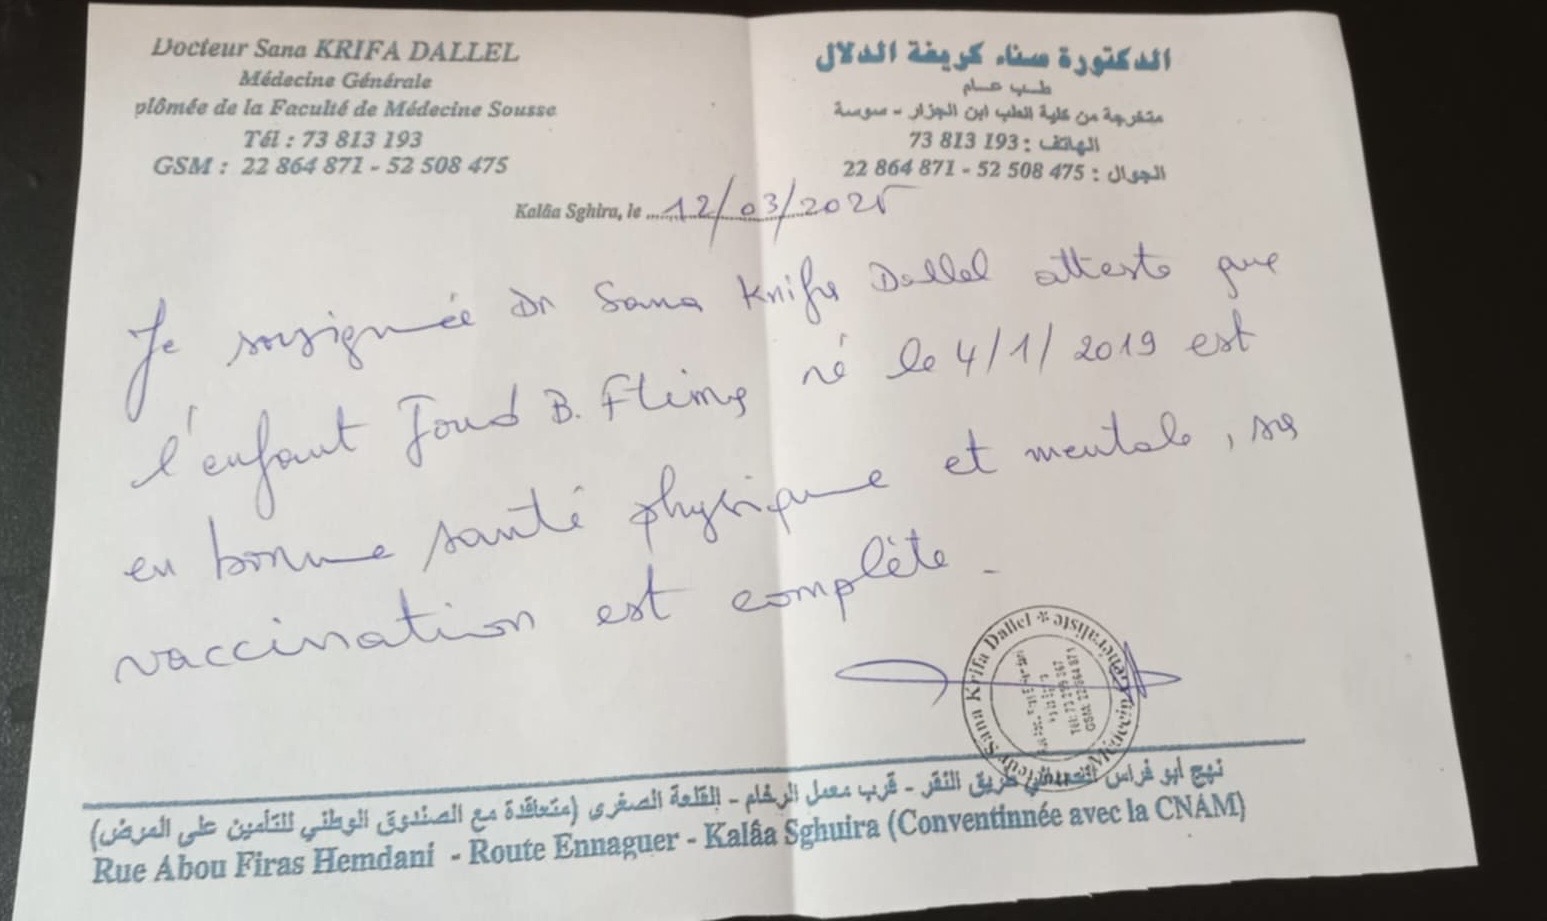 Docteur Sana KRIFA DALLEL
Médecine Générale
plômée de la Faculté de Médecine Sousse
Tél : 73 813 193
GSM : 22 864 871 - 52 508 475
الدكتورة سناء كريفة الدلال
طب عام
متخرجة من كلية الطب ابن الجزار - سوسة
الهاتف : 193 813 73
الجوال : 475 508 52 - 871 864 22
Kalâa Sghira, le 12/03/2025
Je sousignée Dr Sana Krifa Dallel atteste que
l'enfant B. né le 4/1/2019 est
en bonne santé physique et mentale, sa
vaccination est complète.
Sana Krifa Dallel * Généraliste
Médecin
GSM: 22 864 871
نهج أبو فراس الحمداني طريق النقر - قرب معمل الرخام - القلعة الصغرى (متعاقدة مع الصندوق الوطني للتأمين على المرض)
Rue Abou Firas Hemdani - Route Ennaguer - Kalâa Sghuira (Conventinnée avec la CNAM)